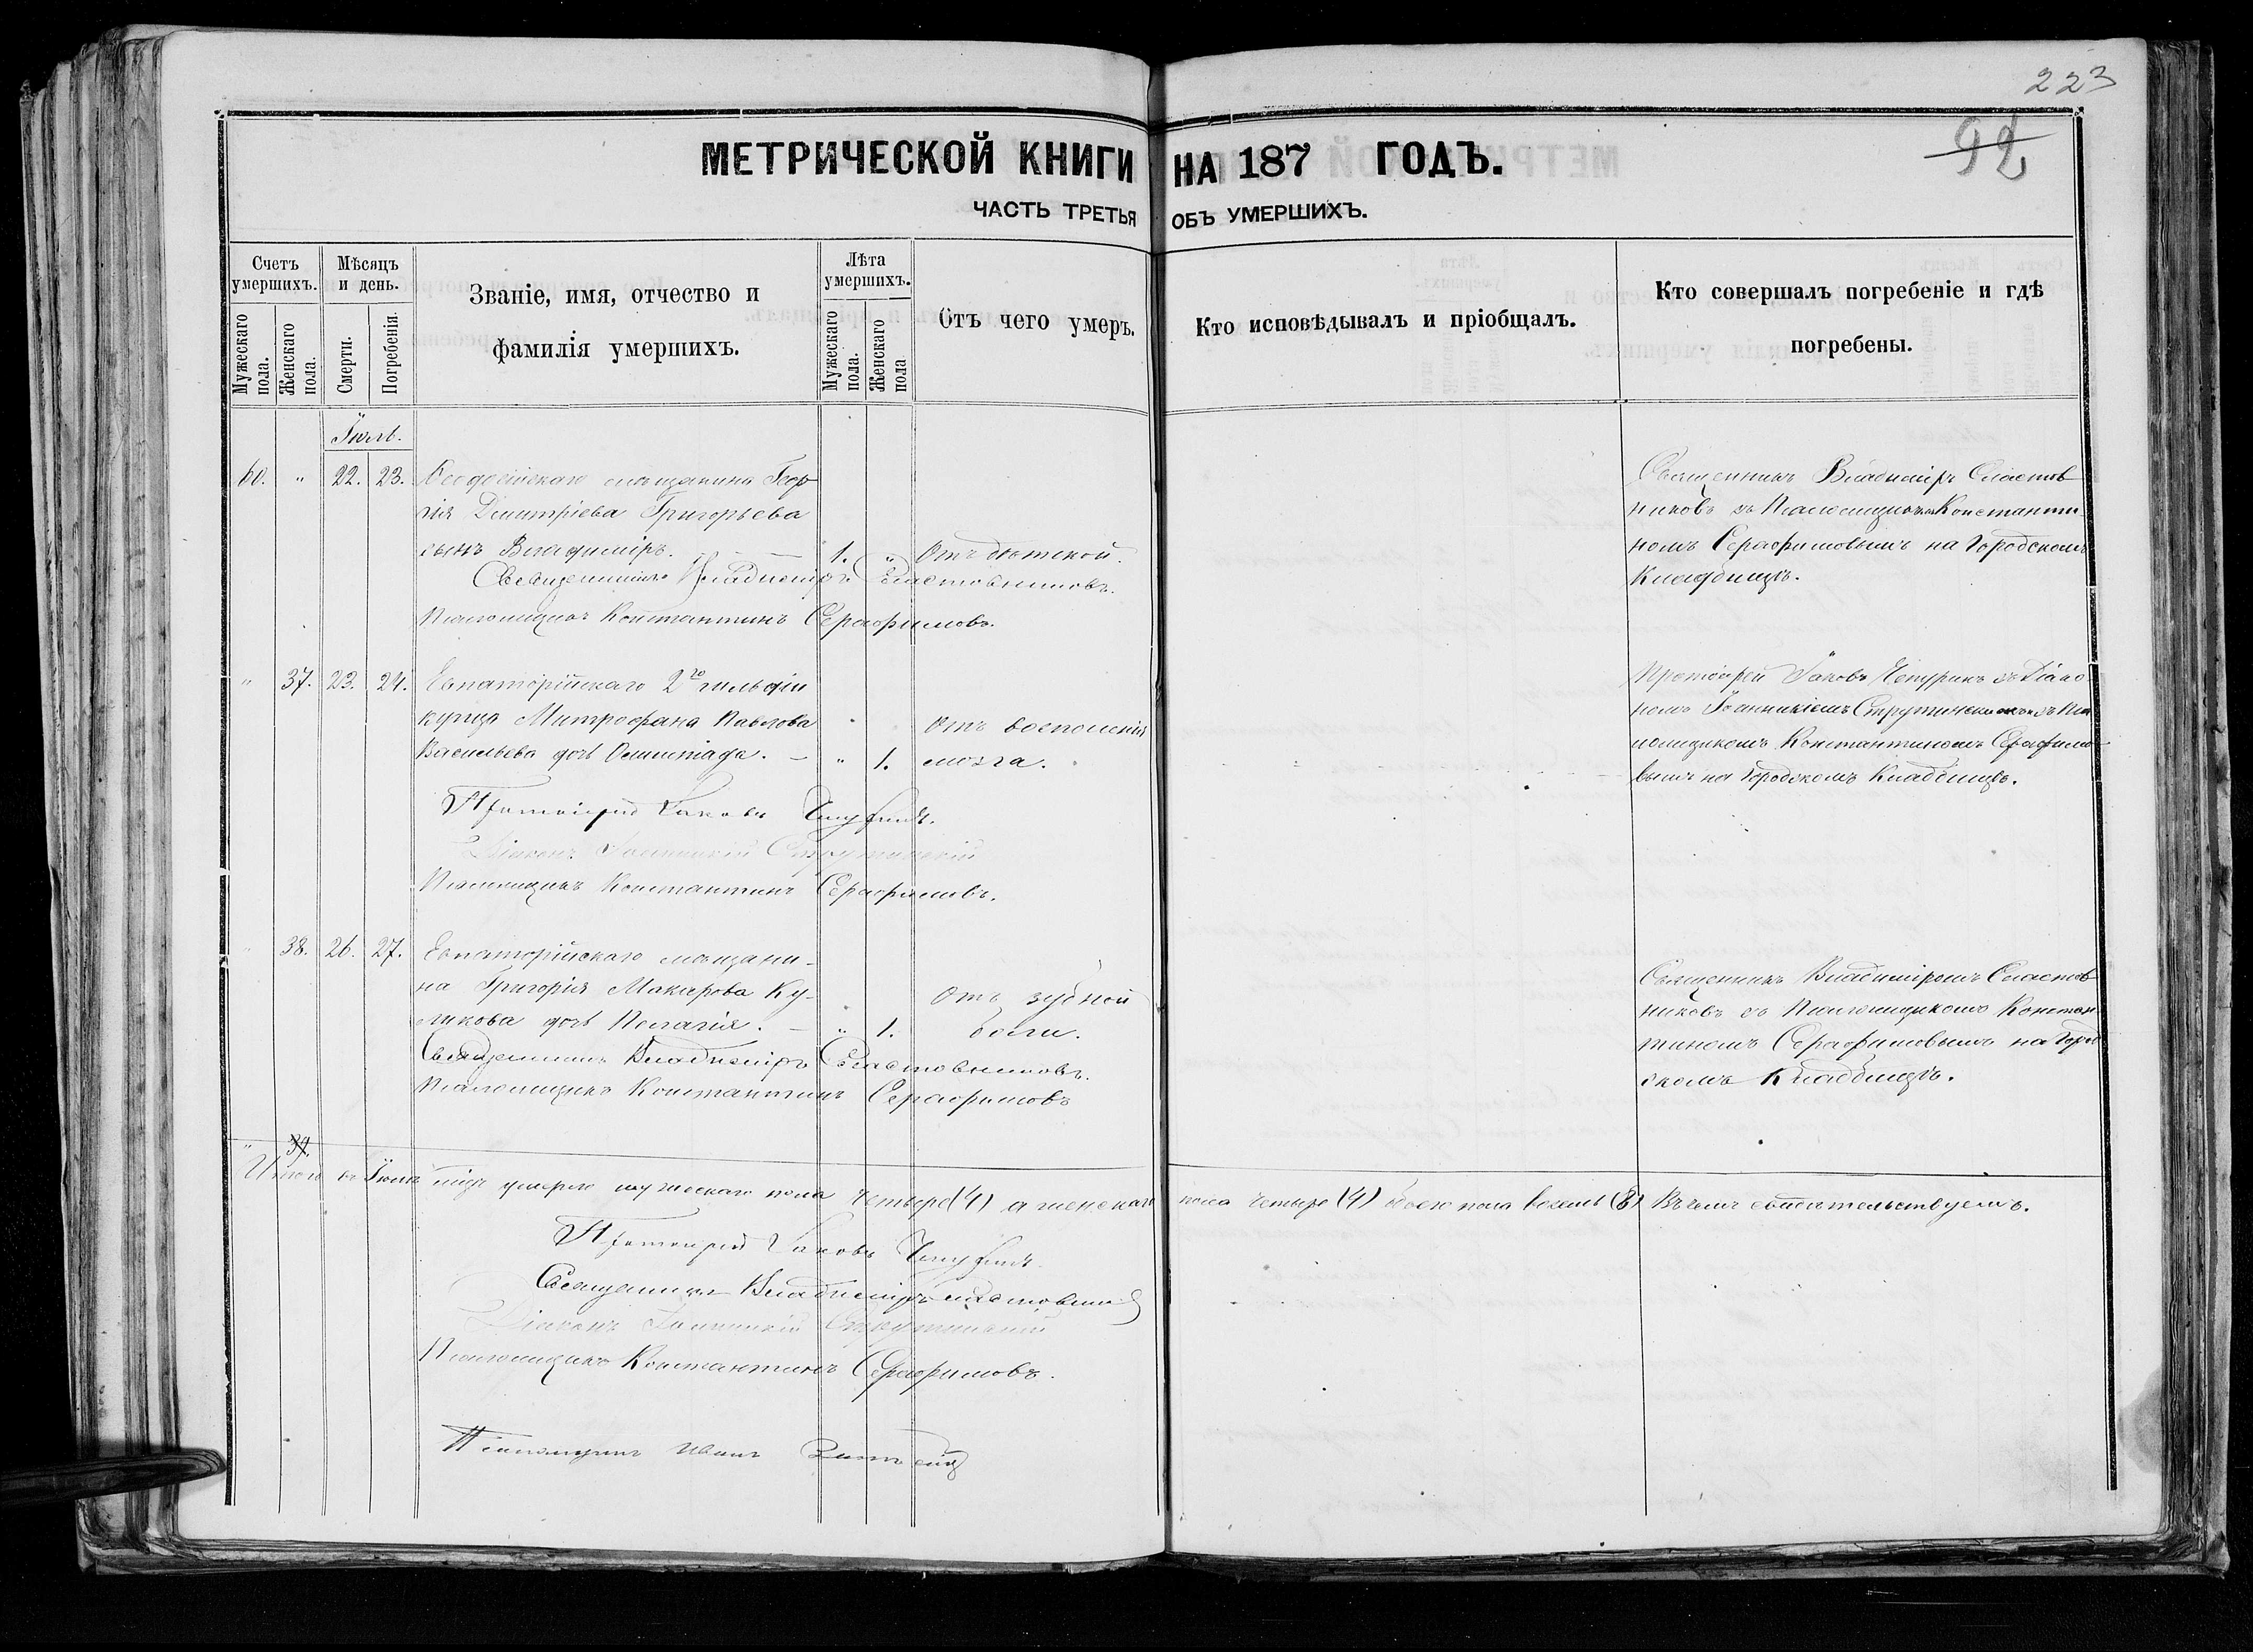 223
92
МЕТРИЧЕСКОЙ КНИГИ НА 187 ГОДЪ.
ЧАСТЬ ТРЕТЬЯ ОБЪ УМЕРШИХЪ.
Счетъ умершихъ.
Мужескаго пола.
Женскаго пола.
Мѣсяцъ и день.
Смерти.
Погребенія.
Званіе, имя, отчество и
фамилія умершихъ.
Лѣта умершихъ.
Мужескаго пола.
Женскаго пола
Отъ чего умеръ.
Кто исповѣдывалъ и пріобщалъ.
Кто совершалъ погребеніе и гдѣ
погребены.
Іюль.
60. " 22. 23. Ѳеодосійскаго мѣщанина Геор
гія Димитріева Григорьева
сынъ Владиміръ. — 1. " Отъ дѣтской.
Священникъ Владиміръ Сластовниковъ.
Псаломщикъ Константинъ Серафимовъ.
Священникъ Владиміръ Сластов
никовъ съ Псаломщикомъ Константи
номъ Серафимовымъ на Городскомъ
Кладбищѣ.
" 37. 23. 24. Евпаторійскаго 2го гильдіи
купца Митрофана Павлова
Васильева дочь Олимпіада. — " 1.
Отъ воспаленія
мозга.
Протоіерей Іаковъ Чепуринъ.
Діаконъ Іоанникій Струтинскій
Псаломщикъ Константинъ Серафимовъ.
Протоіерей Іаковъ Чепуринъ съ Діако
номъ Іоанникіемъ Струтинскимъ и съ Пса
ломщикомъ Константиномъ Серафимо
вымъ на Городскомъ Кладбищѣ.
" 38. 26. 27. Евпаторійскаго мѣщани-
на Григорія Макарова Ку-
ликова дочь Пелагія. — " 1.
Отъ зубной
боли.
Священникъ Владиміръ Сластовниковъ.
Псаломщикъ Константинъ Серафимовъ
Священникъ Владиміромъ Сластов
никовъ съ Псаломщикомъ Констан
тиномъ Серафимовымъ на Горо
скомъ Кладбищѣ.
" 39.
Итого въ Іюлѣ мѣс. умерло мужескаго пола четыре (4) а женскаго пола четыре (4) обоего пола восемь (8) Въ чемъ свидѣтельствуемъ.
Протоіерей Іаковъ Чепуринъ.
Священникъ Владиміръ Сластовниковъ
Діаконъ Іоанникій Струтинскій
Псаломщикъ Константинъ Серафимовъ.
Псаломщикъ Иванъ